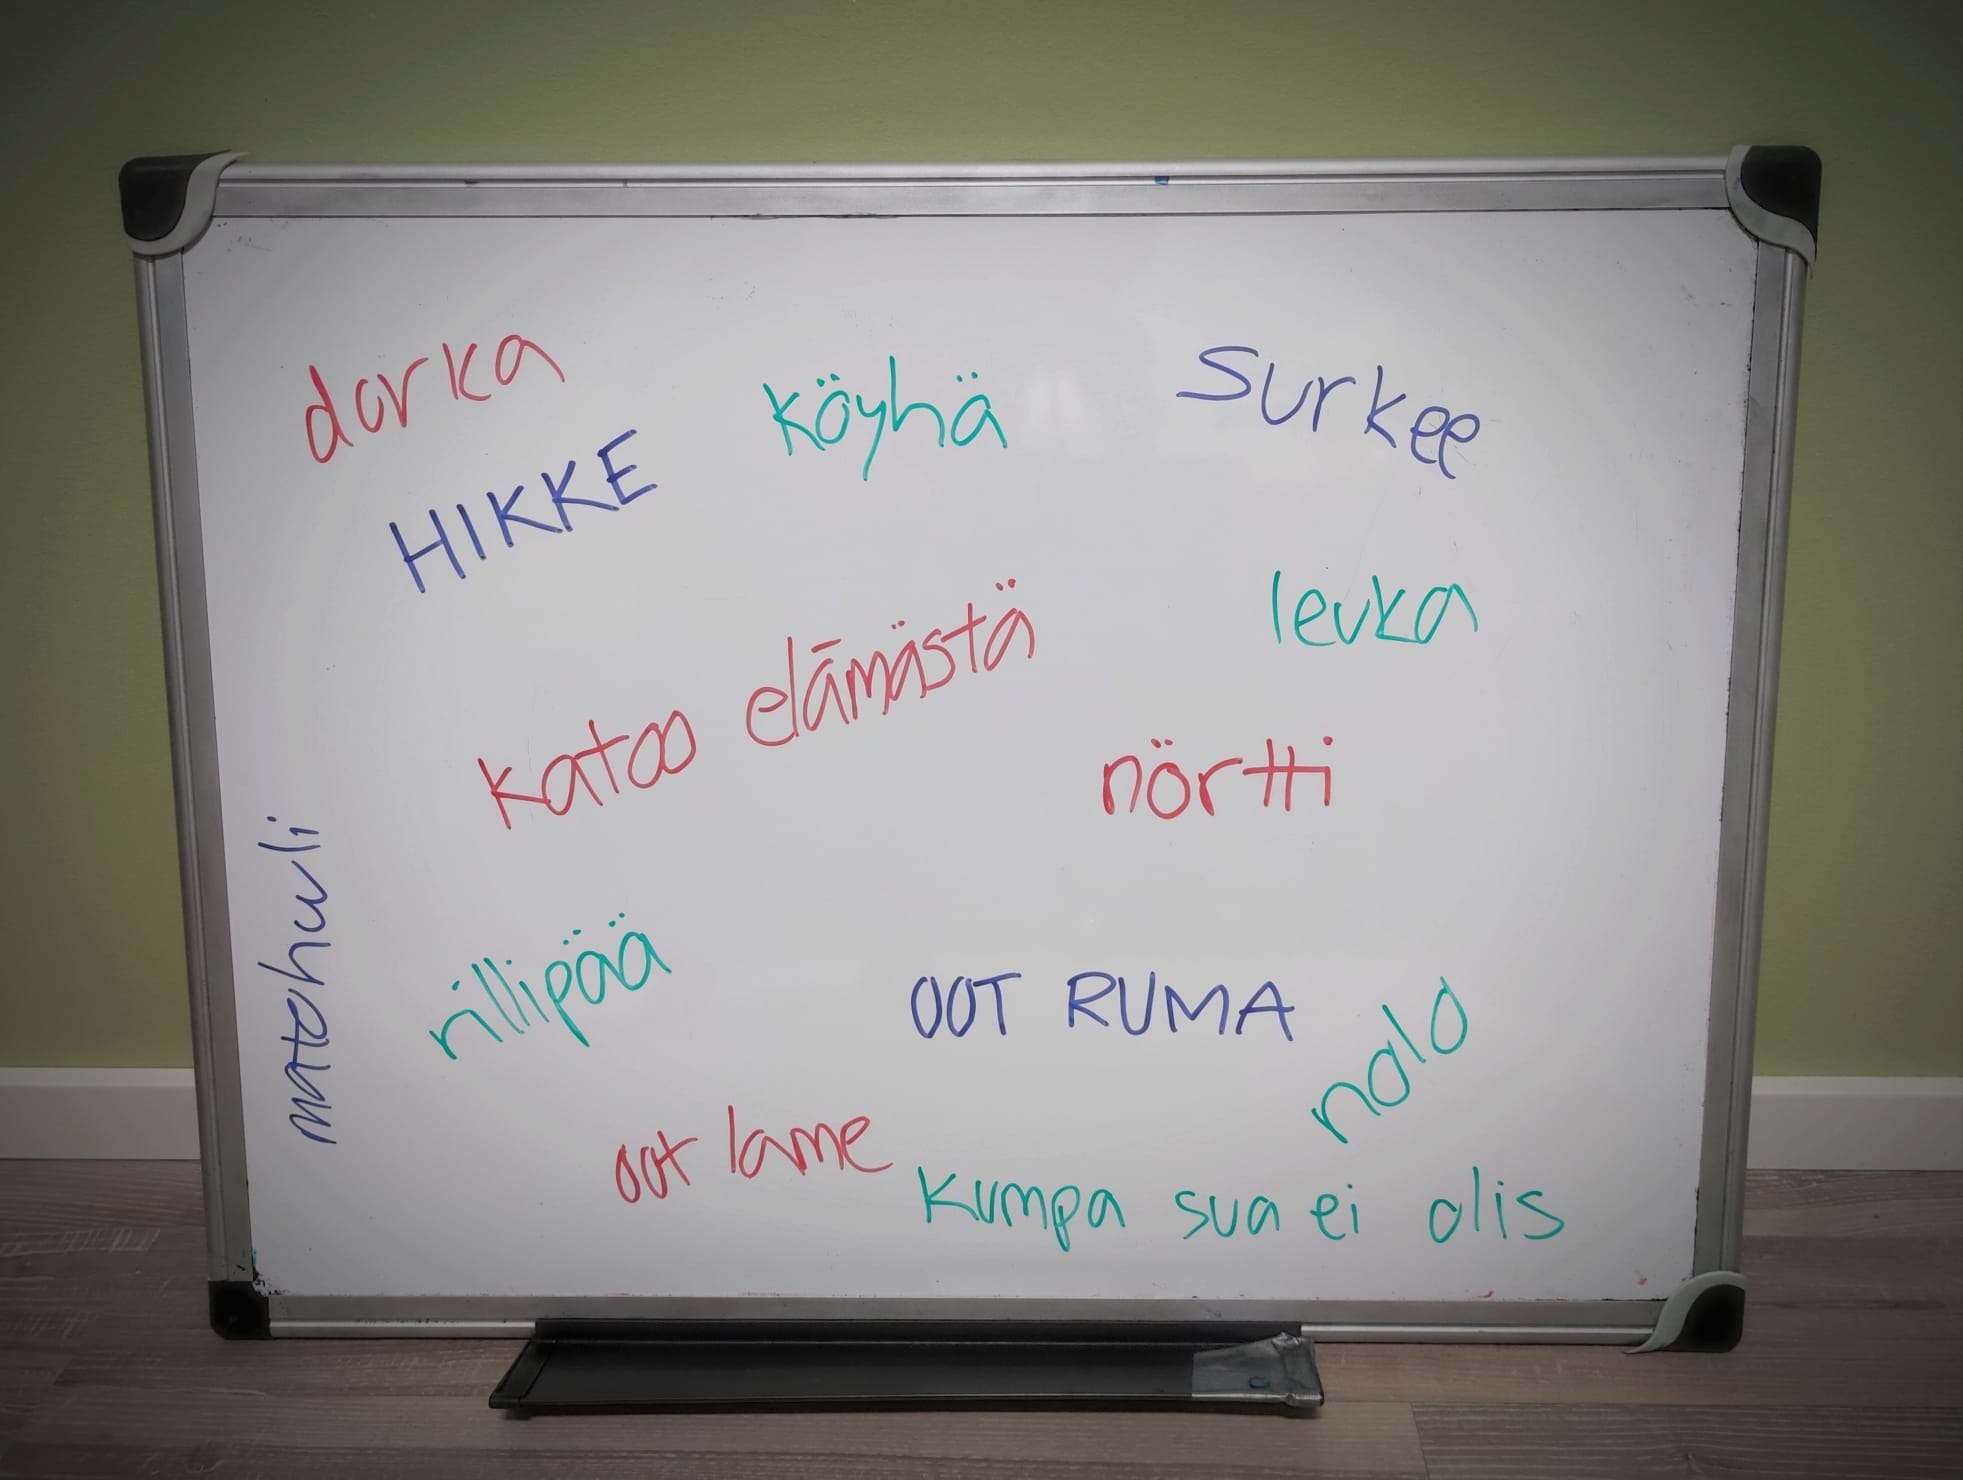 dorka
köyhä
surkee
HIKKE
leuka
katoo elämästä
nörtti
matohuuli
rillipää
OOT RUMA
nolo
oot lame
kumpa sua ei olis